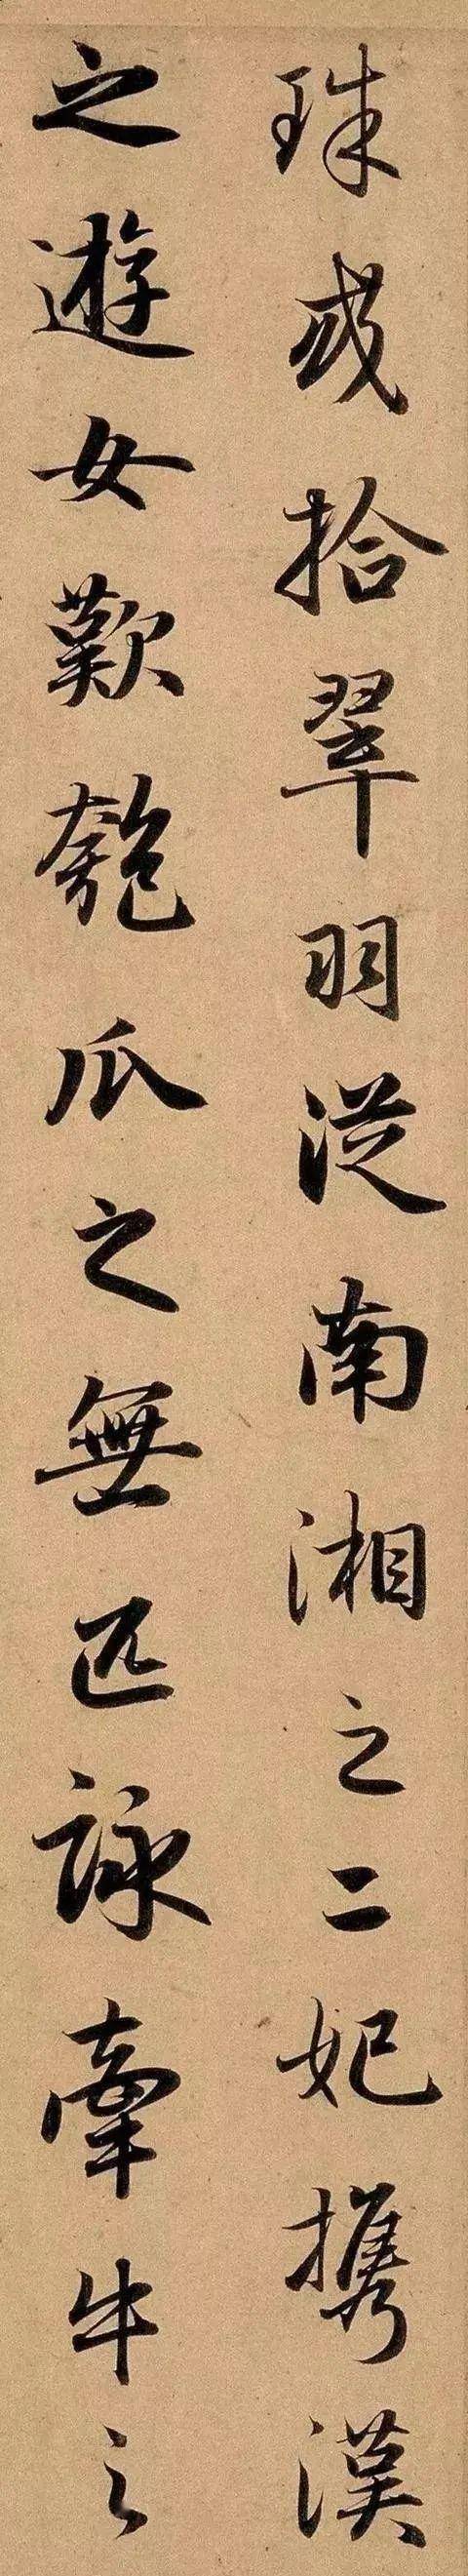 珠或拾翠羽從南湘之二妃携漢
之遊女歎匏瓜之無匹詠牽牛之